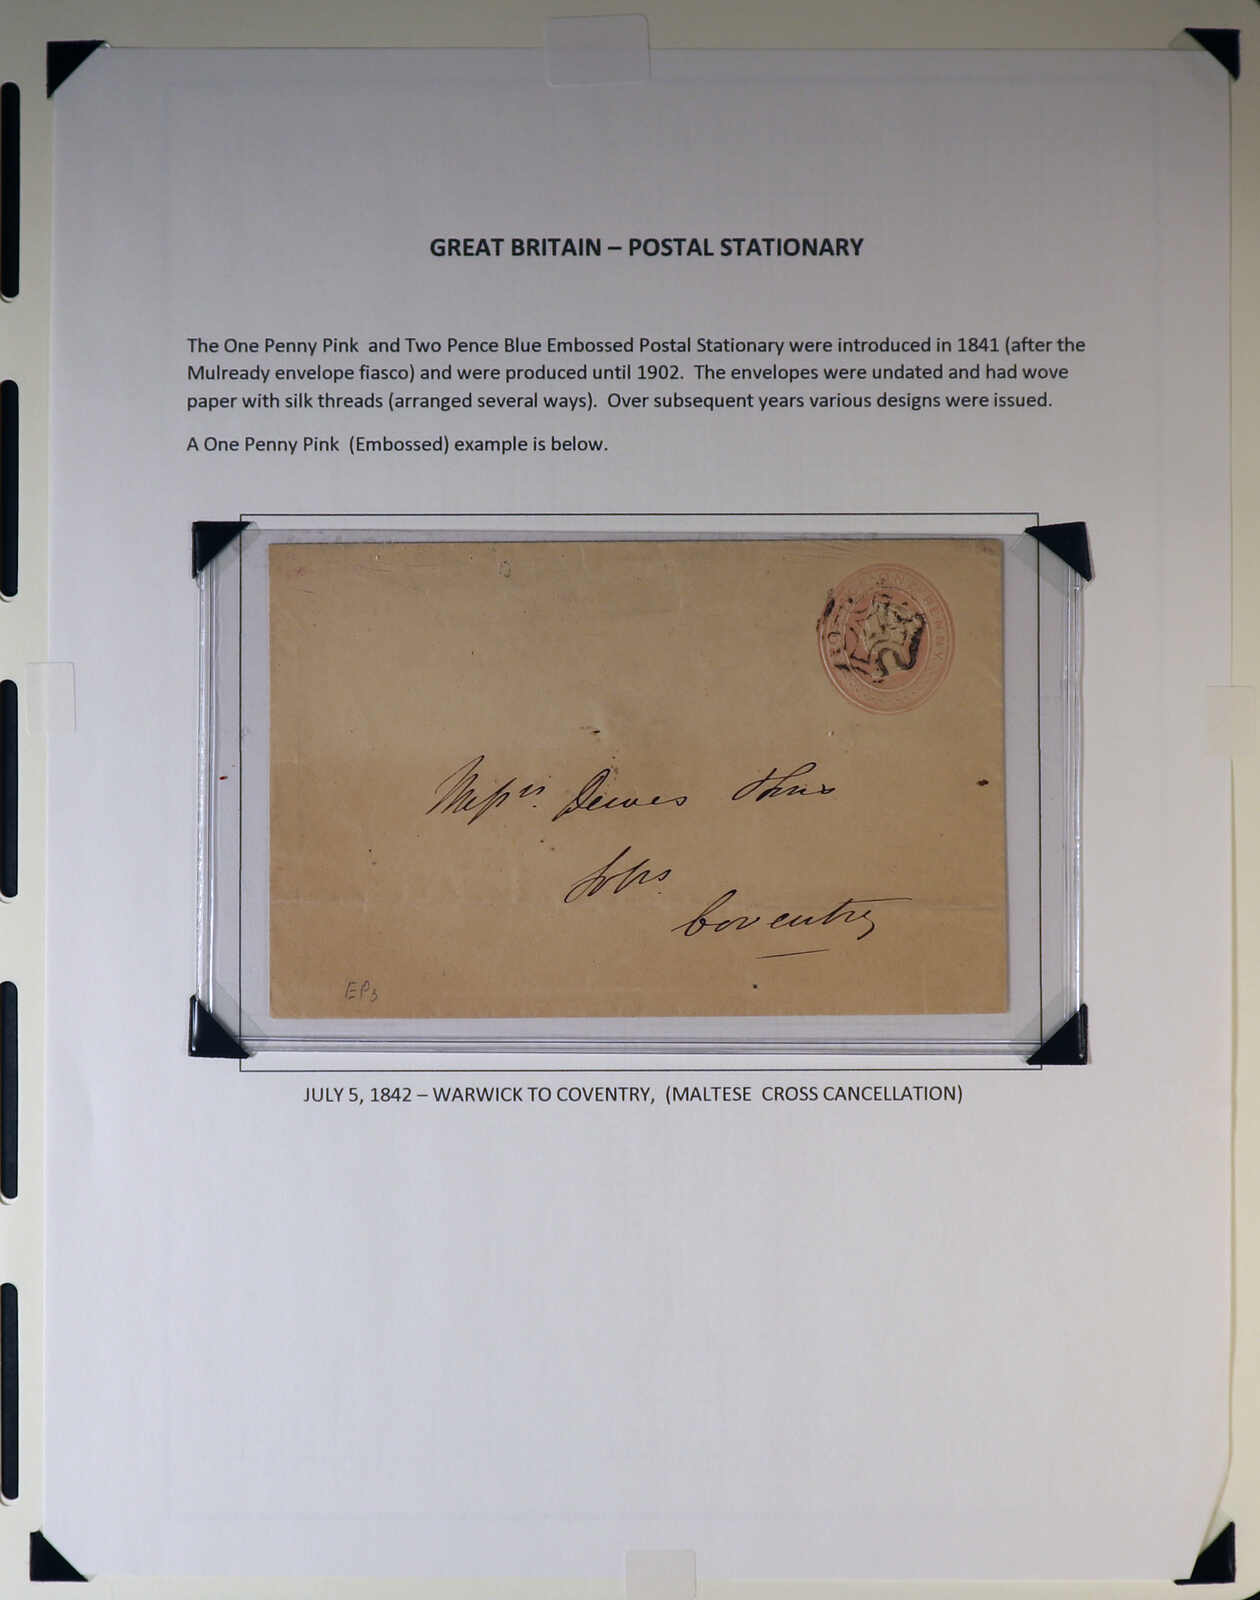 GREAT BRITAIN – POSTAL STATIONARY
The One Penny Pink and Two Pence Blue Embossed Postal Stationary were introduced in 1841 (after the
Mulready envelope fiasco) and were produced until 1902. The envelopes were undated and had wove
paper with silk threads (arranged several ways). Over subsequent years various designs were issued.
A One Penny Pink (Embossed) example is below.
POSTAGE ONE PENNY
Messrs. Dewes & Sons
Solrs.
Coventry
EP3
JULY 5, 1842 – WARWICK TO COVENTRY, (MALTESE CROSS CANCELLATION)